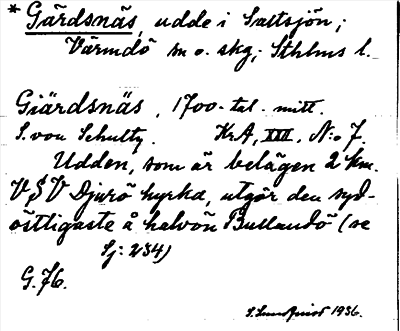 * Gärdsnäs, udde i Saltsjön;
Värmdö sn o. skg; Sthlms l.
Giärdsnäs, 1700-tal. mitt.
S. von Schultz. KrA, XIII, N:o 7.
Udden, som är belägen 2 km.
VSV Djurö kyrka, utgör den syd-
östligaste å halvön Bullandö (se
Sj: 234)
G. Hb.
1936.